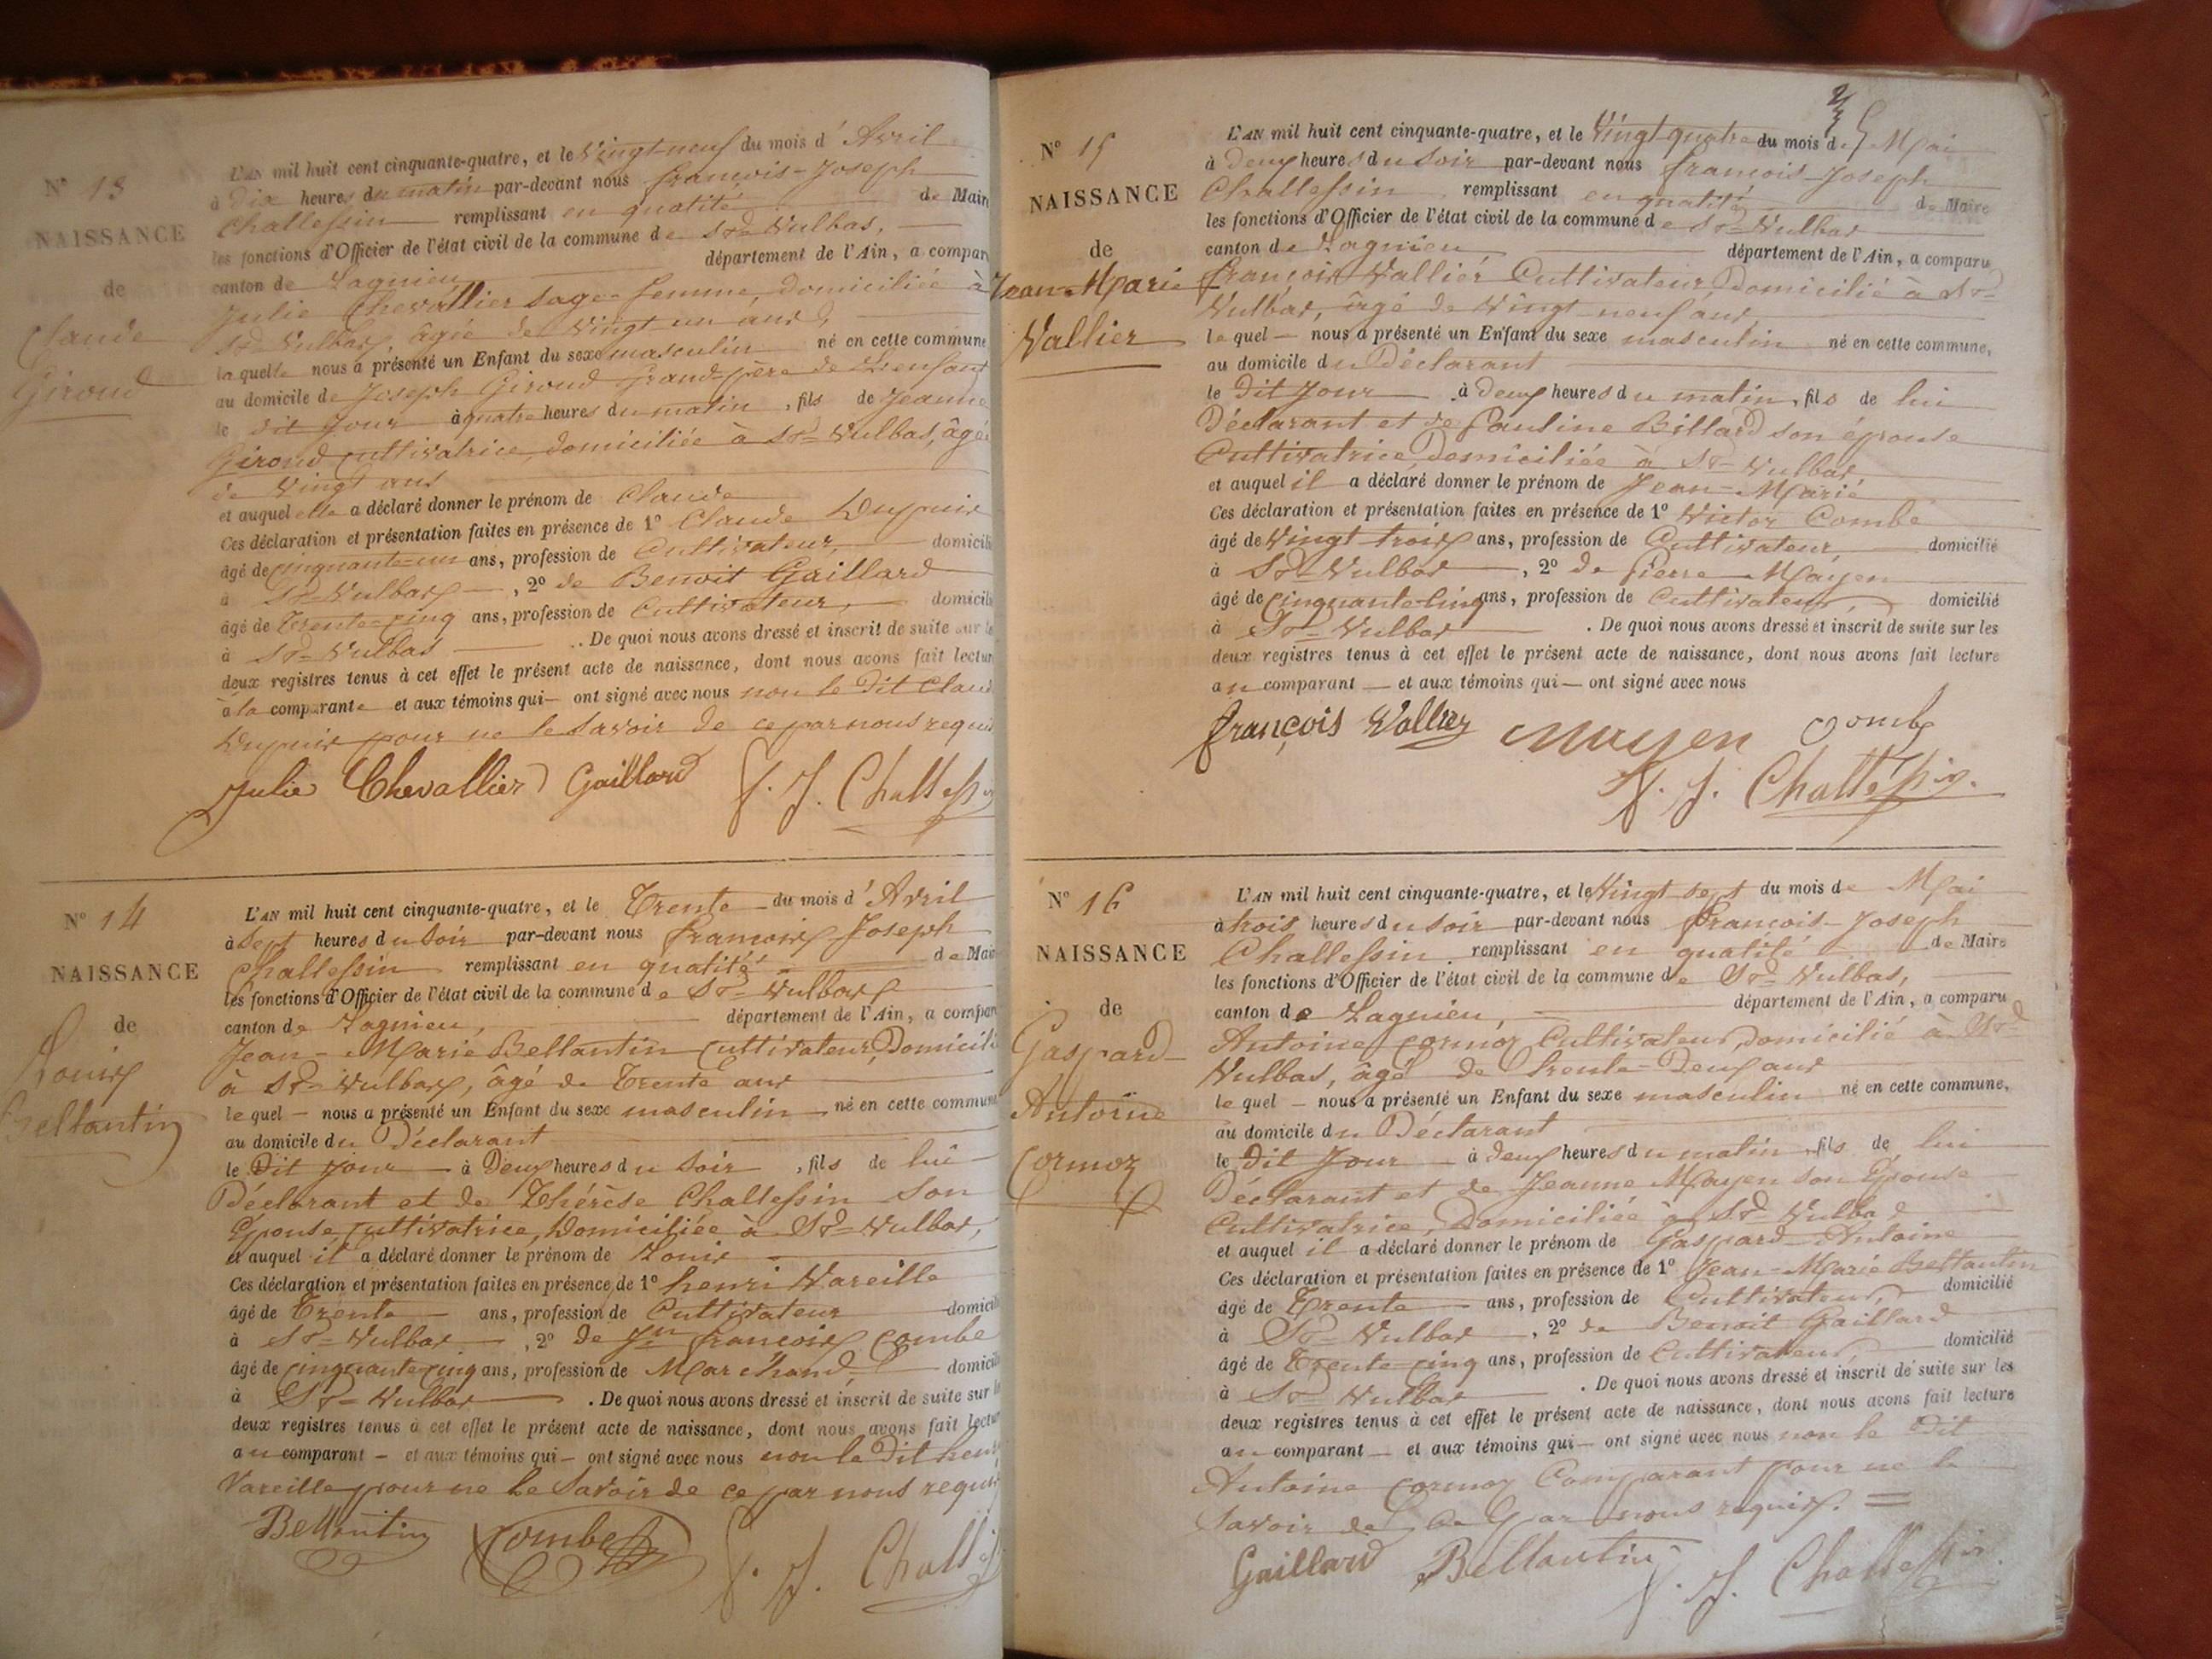 N° 13
NAISSANCE
de
Claude
Giroud
L'AN mil huit cent cinquante-quatre, et le Vingt neuf du mois d'Avril
à Dix heures du matin par-devant nous françois-Joseph
Challessin remplissant en qualité de Maire
les fonctions d'Officier de l'état civil de la commune de St-Vulbas,
canton de Lagnieu département de l'Ain, a comparu
Julie Chevallier sage-femme, domiciliée à
St-Vulbas, âgée de vingt un ans,
laquelle nous a présenté un Enfant du sexe masculin né en cette commune
au domicile de Joseph Giroud grand-père de L'enfant
le dit jour à quatre heures du matin, fils de Jeanne
Giroud cultivatrice, domiciliée à St-Vulbas, âgée
de vingt ans
et auquel elle a déclaré donner le prénom de Claude
Ces déclaration et présentation faites en présence de 1° Claude Dupuis
âgé de cinquante-un ans, profession de Cultivateur, domicilié
à St-Vulbas, 2° de Benoit Gaillard
âgé de Trente-cinq ans, profession de Cultivateur, domicilié
à St-Vulbas. De quoi nous avons dressé et inscrit de suite sur les
deux registres tenus à cet effet le présent acte de naissance, dont nous avons fait lecture
à la comparante et aux témoins qui ont signé avec nous non le Dit Claude
Dupuis pour ne le Savoir de ce par nous requis
Julie Chevallier Gaillard f. J. Challessin
N° 14
NAISSANCE
de
Louis
Bellantin
L'AN mil huit cent cinquante-quatre, et le Trente du mois d'Avril
à Sept heures du Soir par-devant nous françois Joseph
Challessin remplissant en qualité de Maire
les fonctions d'Officier de l'état civil de la commune de St-Vulbas
canton de Lagnieu, département de l'Ain, a comparu
Jean-Marie Bellantin Cultivateur, Domicilié
à St-Vulbas, âgé de Trente ans
lequel nous a présenté un Enfant du sexe masculin né en cette commune
au domicile du Déclarant
le Dit jour à Deux heures du Soir, fils de lui
Déclarant et de Thérèse Challessin Son
Épouse, cultivatrice, Domiciliée à St-Vulbas,
et auquel il a déclaré donner le prénom de Louis
Ces déclaration et présentation faites en présence de 1° henri Vareille
âgé de Trente ans, profession de Cultivateur domicilié
à St-Vulbas, 2° de Jn françois Combe
âgé de cinquante cinq ans, profession de Marchand, domicilié
à St-Vulbas. De quoi nous avons dressé et inscrit de suite sur les
deux registres tenus à cet effet le présent acte de naissance, dont nous avons fait lecture
au comparant et aux témoins qui ont signé avec nous non le Dit henri
Vareille pour ne Le Savoir de ce par nous requis
Bellantin Combe f. J. Challessin
N° 15
NAISSANCE
de
Jean-Marie
Vallier
L'AN mil huit cent cinquante-quatre, et le Vingt quatre du mois de Mai
à Deux heures du Soir par-devant nous françois Joseph
Challessin remplissant en qualité de Maire
les fonctions d'Officier de l'état civil de la commune de St-Vulbas
canton de Lagnieu département de l'Ain, a comparu
françois Vallier Cultivateur, Domicilié à St-
Vulbas, âgé de Vingt neuf ans,
lequel nous a présenté un Enfant du sexe masculin né en cette commune,
au domicile du Déclarant
le Dit Jour à Deux heures du matin, fils de lui
Déclarant et de Pauline Billard son épouse
Cultivatrice, Domiciliée à St-Vulbas,
et auquel il a déclaré donner le prénom de Jean-Marie
Ces déclaration et présentation faites en présence de 1° Victor Combe
âgé de Vingt trois ans, profession de Cultivateur, domicilié
à St-Vulbas, 2° de Pierre Mayen
âgé de cinquante-cinq ans, profession de Cultivateur, domicilié
à St-Vulbas. De quoi nous avons dressé et inscrit de suite sur les
deux registres tenus à cet effet le présent acte de naissance, dont nous avons fait lecture
au comparant et aux témoins qui ont signé avec nous
françois Vallier Mayen Combe
f. J. Challéssin.
N° 16
NAISSANCE
de
Gaspard
Antoine
Cormoz
L'AN mil huit cent cinquante-quatre, et le Vingt sept du mois de Mai
à trois heures du soir par-devant nous françois-Joseph
Challessin remplissant en qualité de Maire
les fonctions d'Officier de l'état civil de la commune de St-Vulbas,
canton de Lagnieu, département de l'Ain, a comparu
Antoine Cormoz Cultivateur, domicilié à St-
Vulbas, âgé de trente-Deux ans
lequel nous a présenté un Enfant du sexe masculin né en cette commune,
au domicile du Déclarant
le Dit Jour à deux heures du matin, fils de lui
Déclarant et de Jeanne Mayen son Épouse
Cultivatrice, Domiciliée à St-Vulbas
et auquel il a déclaré donner le prénom de Gaspard Antoine
Ces déclaration et présentation faites en présence de 1° Jean-Marie Bellantin
âgé de Trente ans, profession de Cultivateur, domicilié
à St-Vulbas, 2° de Benoit Gaillard
âgé de Trente-cinq ans, profession de Cultivateur, domicilié
à St-Vulbas. De quoi nous avons dressé et inscrit de suite sur les
deux registres tenus à cet effet le présent acte de naissance, dont nous avons fait lecture
au comparant et aux témoins qui ont signé avec nous non le Dit
Antoine Cormoz Comparant pour ne le
Savoir de Ce par nous requis. =
Gaillard Bellantin f. J. Challessin.